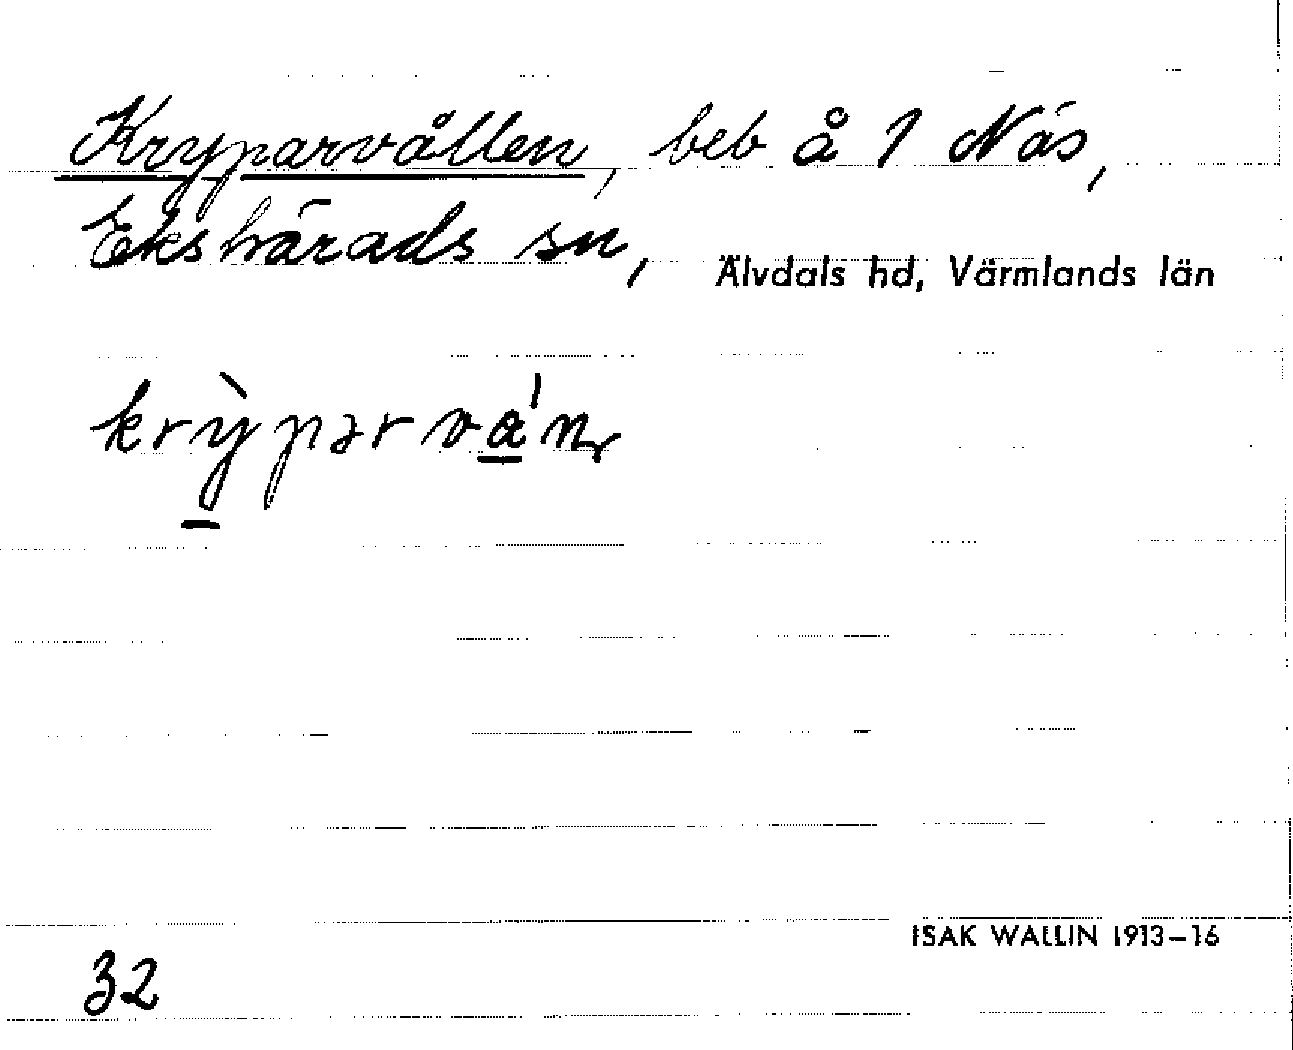 Kryparvållen, beb å 1 Näs,
Ekshärads sn,
Älvdals hd, Värmlands län
krỳpərván
ISAK WALLIN 1913–16
32